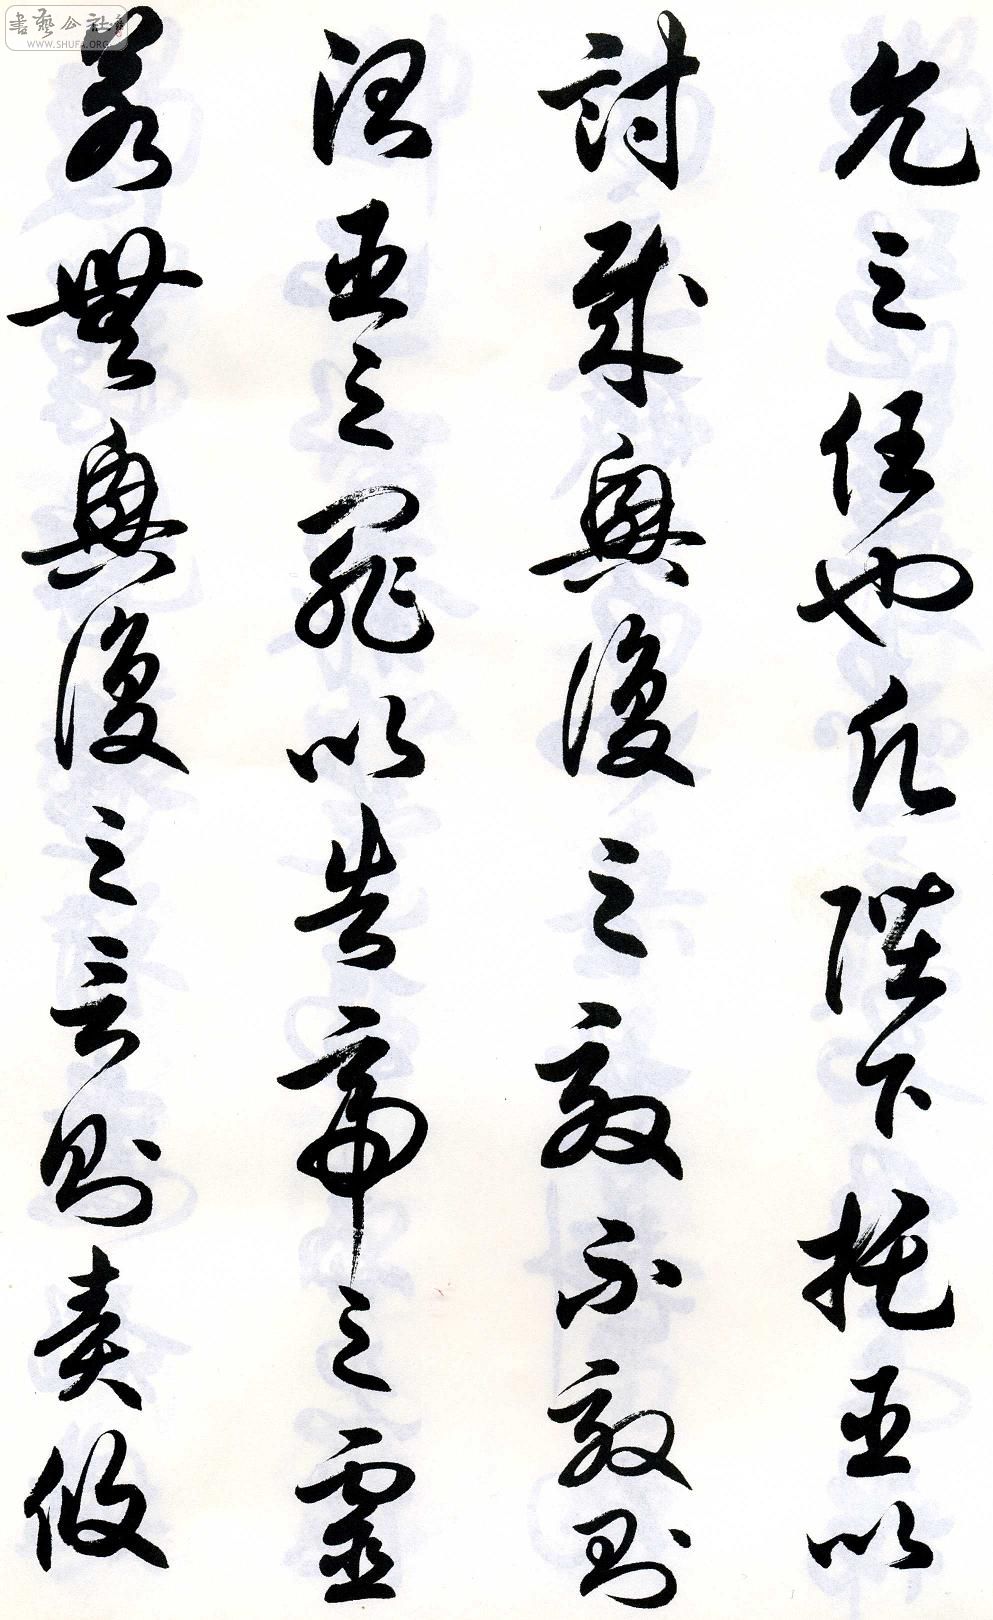 書藝公社
WWW.SHUFA.ORG
允之任也願陛下托臣以
討賊興復之效不效則
治臣之罪以告帝之靈
若無興復之言則責攸